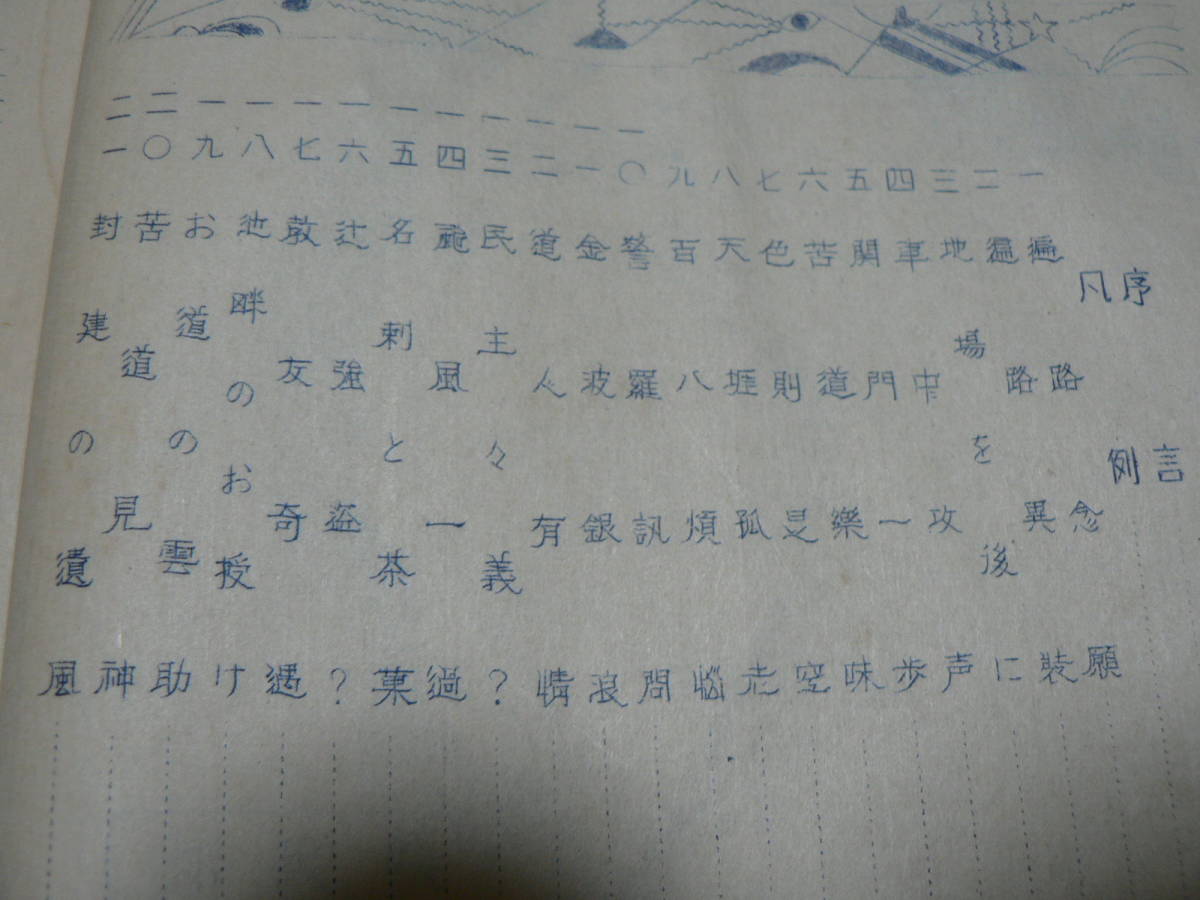 序言
凡例
一 遍路念願
二 遍路異装
三 地場を後に
四 車中攻声
五 関門一歩
六 苦道樂味
七 色則是空
八 天涯孤老
九 百八煩悩
一〇 警羅訊問
一一 金波銀浪
一二 道人有情
一三 民主々義?
一四 颱風一過
一五 名刺と茶菓
一六 辻強盗?
一七 敎友奇遇
一八 池畔のお授け
一九 お道の雲助
二〇 苦道見神
二一 封建の遺風